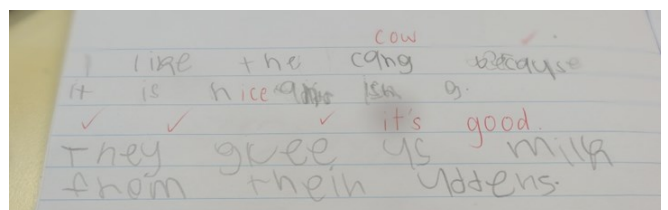 cow
I like the cang because
it is nice g.
it's good.
They gvee us milk
from their uddens.